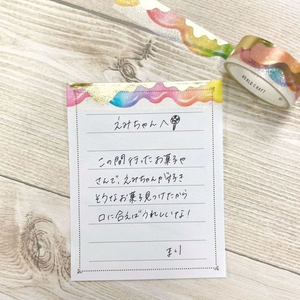 えみちゃんへ
この間行ったお菓子や
さんで、えみちゃんが好き
そうなお菓子見つけたから
口に合えばうれしいな!
まり